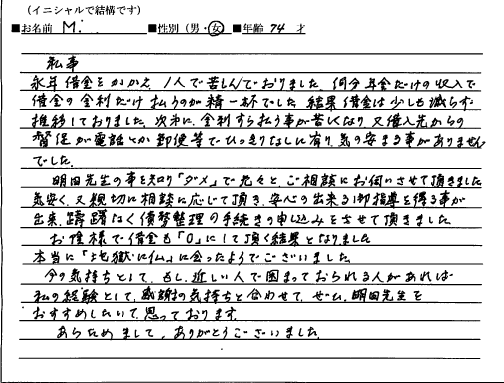 (イニシャルで結構です)
■お名前 M. ■性別(男・女) ■年齢 74 才
私事
永年借金をかかえ、1人で苦しんでおりました。何分年金だけの収入で
借金の金利だけ払うのが精一杯でした。結果借金は少しも減らず
推移しておりました。次第に、金利すら払う事が苦しくなり、又借入先からの
督促が電話とか郵便等でひっきりなしに有り、気の安まる事がありません
でした。
明田先生の事を知り「ダメ」で元々と、ご相談にお伺いさせて頂きました
気安く、又親切に相談に応じて頂き、安心の出来る御指導を得る事が
出来、躊躇なく債務整理の手続きの申し込みをさせて頂きました
お陰様で借金も「0」にして頂く結果となりました
本当に「地獄に仏」に会ったようでございました
今の気持ちとして、もし、近しい人で困まっておられる人があれば
私の経験として、感謝の気持ちと合わせて、ぜひ、明田先生を
おすすめしたいと思っております。
あらためまして、ありがとうございました。